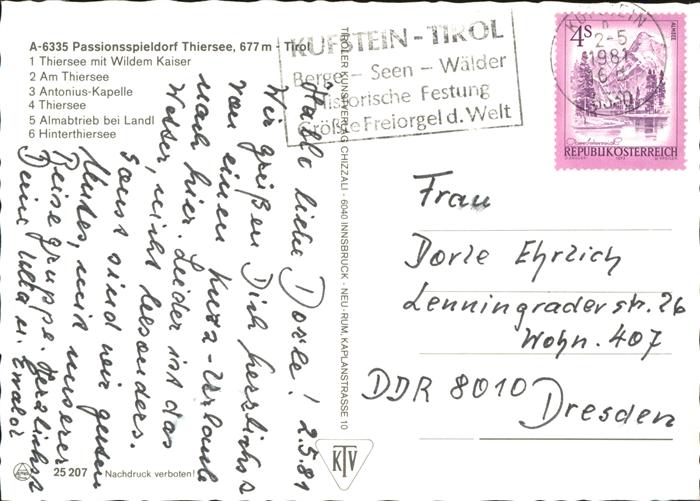 A-6335 Passionsspieldorf Thiersee, 677 m - Tirol
1 Thiersee mit Wildem Kaiser
2 Am Thiersee
3 Antonius-Kapelle
4 Thiersee
5 Almabtrieb bei Landl
6 Hinterthiersee
Hallo liebe Dorle! 2.5.81
Wir grüßen Dich herzlichst
von einem Kurz-Urlaub
nach hier. Leider ist das
Wetter, nicht besonders.
Sonst sind wir guten
Mutes, mit unserer
Reisegruppe. Herzlichst
Deine u. Ewald
25 207
Nachdruck verboten!
TIROLER KUNSTVERLAG CHIZZALI - 6040 INNSBRUCK - NEU-RUM, KAPLANSTRASSE 10
KTV
KUFSTEIN - TIROL
Berge - Seen - Wälder
Historische Festung
Größte Freiorgel d. Welt
KUFSTEIN
2-5
1981
6330
4S
ALMSEE
REPUBLIK ÖSTERREICH
Frau
Dorle Ehrlich
Lenningrader str. 26
Wohn. 407
DDR 8010 Dresden